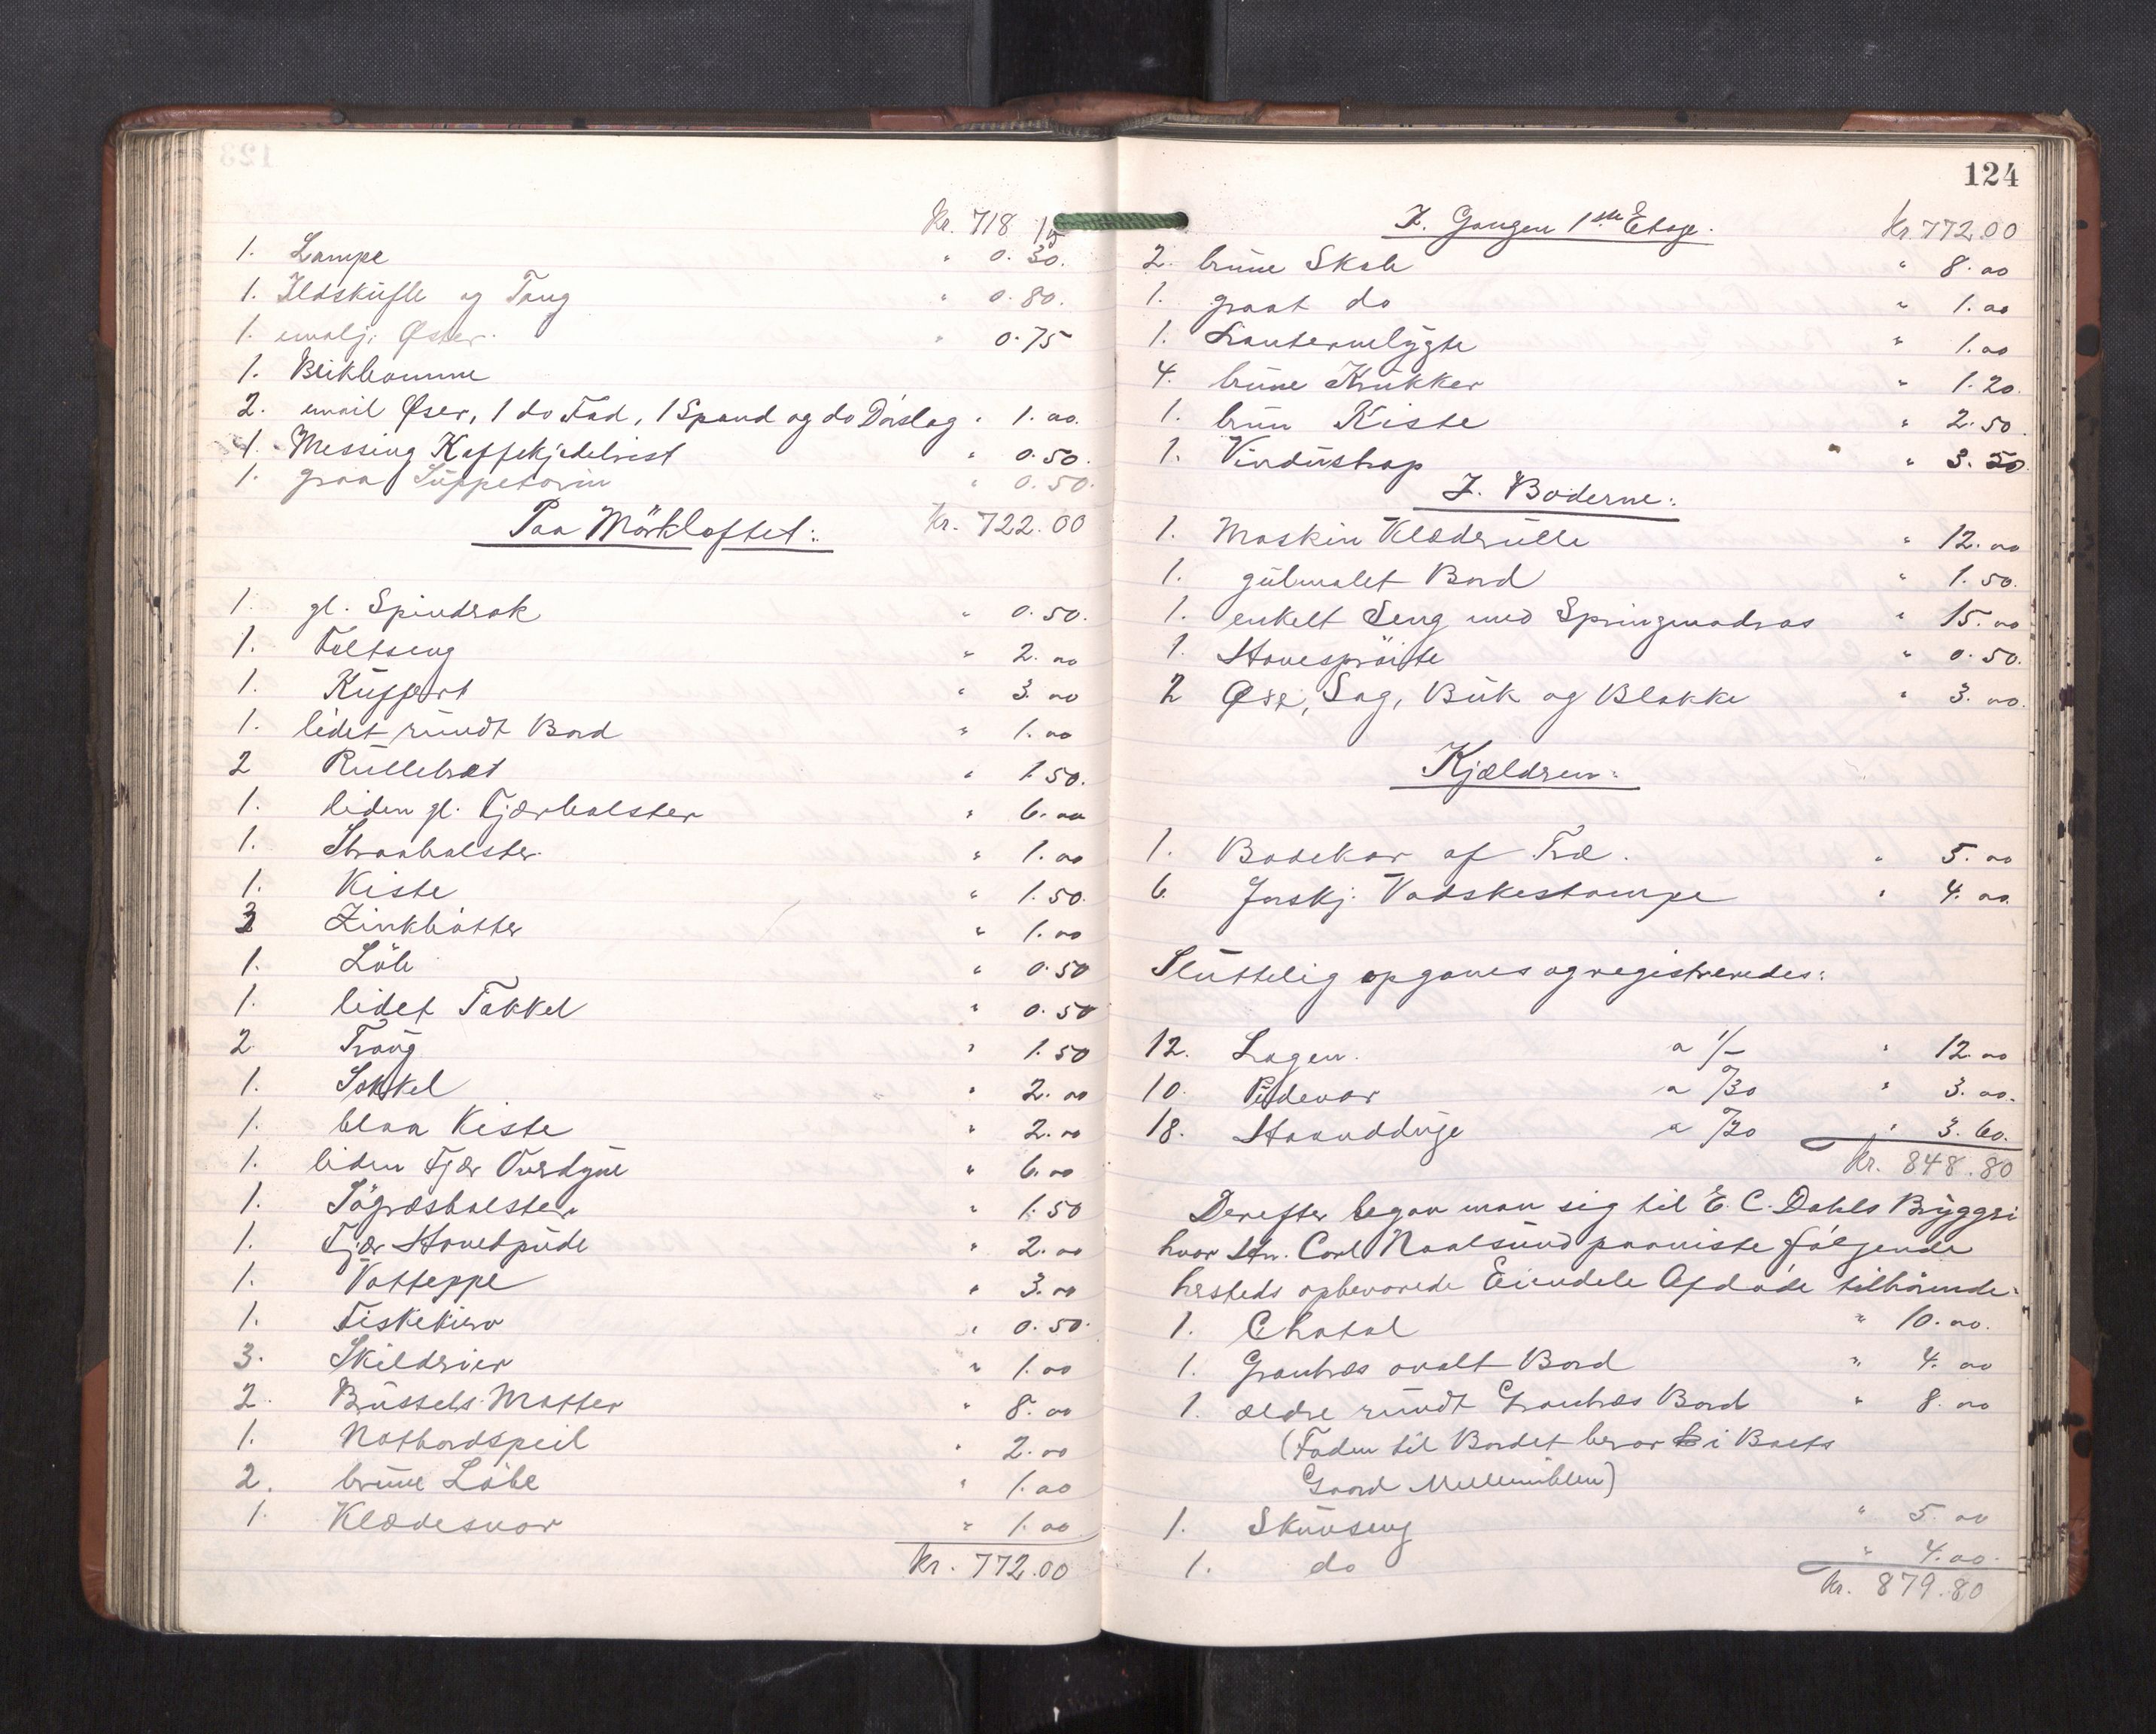 Kr. 718 15
1. Lampe " 0.30.
1. Ildskuffe og Tang " 0.80.
1. emalj. Øster. " 0.75
1. Blikkomme
2. email Øser, 1 do Fad, 1 Spand og do Dörslag " 1.00.
1. Messing Kaffekjedelrist " 0.50.
1. graa Suppeterrin " 0.50.
Paa Mörkloftet: Kr. 722.00
1. gl. Spindrok " 0.50.
1. Feltseng " 2.00
1. Kuffert " 3.00
1. lidet rundt Bord " 1.00
2 Rullebræt " 1.50.
1. liden gl. Fjærbolster " 6.00
1. Straabolster " 1.00
1. Kiste " 1.50.
3 Zinkbötter " 1.00
1. Löb " 0.50
1. lidet Takkel " 0.50
2 Traug " 1.50
1. Sokkel " 2.00
1. blaa Kiste " 2.00
1. liden Fjær Overdyne " 6.00
1. Sögræsbolster " 1.50
1. Fjær Hovedpude " 2.00
1. Vatteppe " 3.00
1. Fiskekurv " 0.50.
3. Skilderier " 1.00
2. Brüssels-Matter " 8.00
1. Natbordspeil " 2.00
2. brune Löbe " 1.00
1. Klædesnor " 1.00
Kr. 772.00
124
I. Gangen 1ste Etage. Kr. 772.00
2. brune Skab " 8.00
1. graat do " 1.00
1. Lanternelygte " 1.00
4. brune Krukker " 1.20.
1. brun Kiste " 2.50.
1. Vindustrap " 3.50
I. Boderne:
1. Maskin Klæderulle " 12.00
1. gulmalet Bord " 1.50.
1. enkelt Seng med Springmadras " 15.00
1. Havespröite " 0.50.
2 Øxe, Sag, Buk og Blokke " 3.00.
Kjælderen:
1. Badekar af Træ. " 5.00
6 forskj. Vadskestampe " 4.00.
Sluttelig opgaves og registreredes:
12. Lagen. a 1/- " 12.00
10. Pudevar a 0/30 " 3.00.
18. Haandduge a 0/20 " 3.60.
Kr. 848.80
Derefter begav man sig til E. C. Dahls Bryggeri
hvor Hr. Carl Naalsund paaviste følgende
hersteds opbevarede Eiendele Afdøde tilhørende:
1. Chatol " 10.00.
1. Grantræs ovalt Bord " 4.00
1. ældre rundt Grantræs Bord " 8.00
(Foden til Bordet beror i Baets
Gaard Mellemiblen)
1. Skuvseng " 5.00
1. do " 4.00.
Kr. 879.80